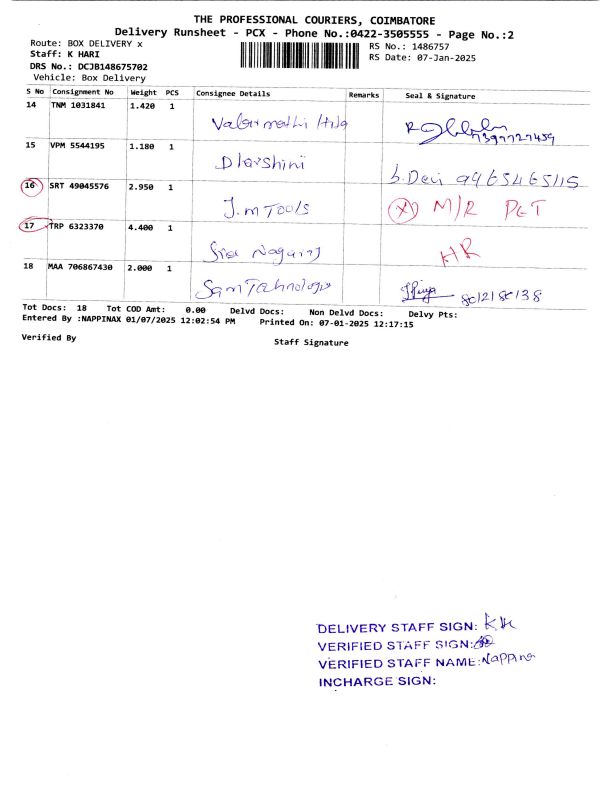 THE PROFESSIONAL COURIERS, COIMBATORE
Delivery Runsheet - PCX - Phone No.:0422-3505555 - Page No.:2
Route: BOX DELIVERY x
Staff: K HARI
DRS No.: DCJB148675702
Vehicle: Box Delivery
RS No.: 1486757
RS Date: 07-Jan-2025
S No Consignment No Weight PCS Consignee Details Remarks Seal & Signature
14 TNM 1031841 1.420 1
15 VPM 5544195 1.180 1 Dlarshini
16 SRT 49045576 2.950 1 J.m Tools M/R PET
17 TRP 6323370 4.400 1 HR
18 MAA 706867430 2.000 1
Tot Docs: 18 Tot COD Amt: 0.00 Delvd Docs: Non Delvd Docs: Delvy Pts:
Entered By :NAPPINAX 01/07/2025 12:02:54 PM Printed On: 07-01-2025 12:17:15
Verified By Staff Signature
DELIVERY STAFF SIGN:
VERIFIED STAFF SIGN:
VERIFIED STAFF NAME: Nappina
INCHARGE SIGN: